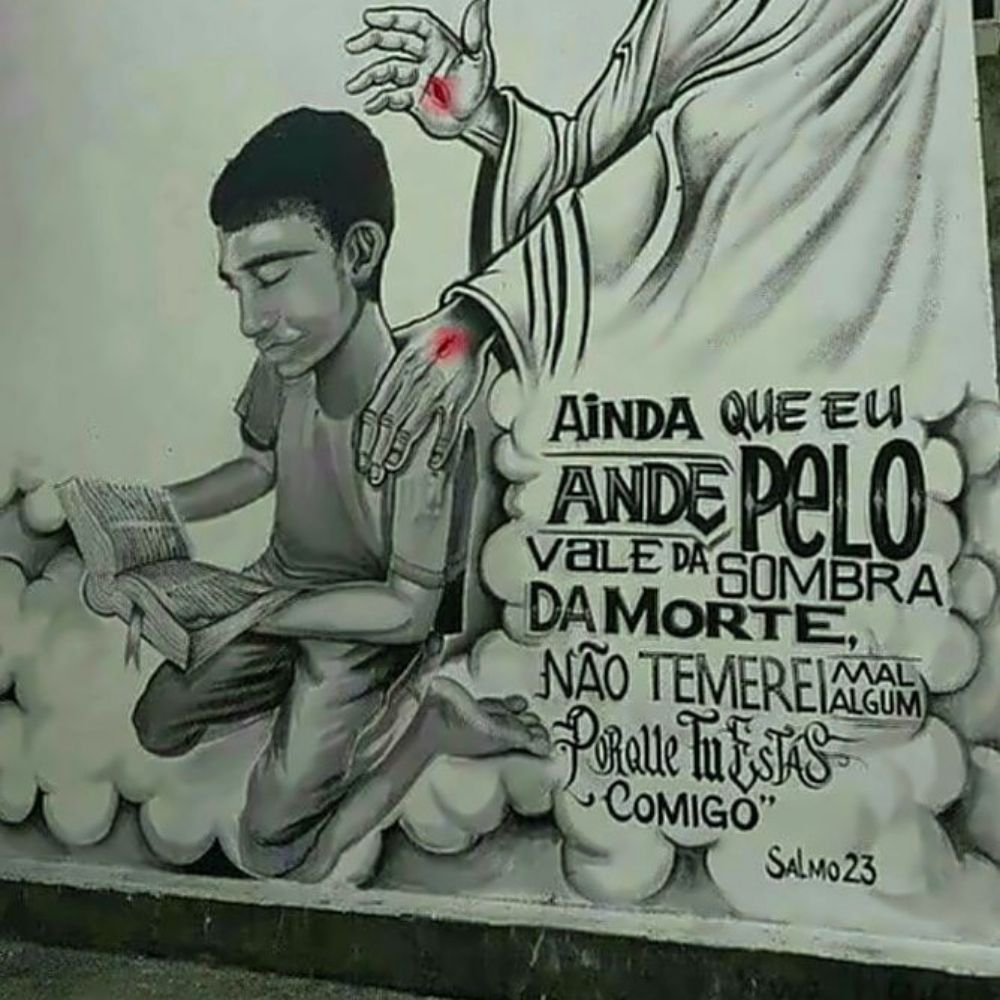 AiNDA QUE EU
ANDE PeLO
VaLE DA SOMBRA
DA MORTE,
NÃO TEMEREI MAL ALGUM
PORQUE TU ESTÁS
COMIGO"
SALMO 23